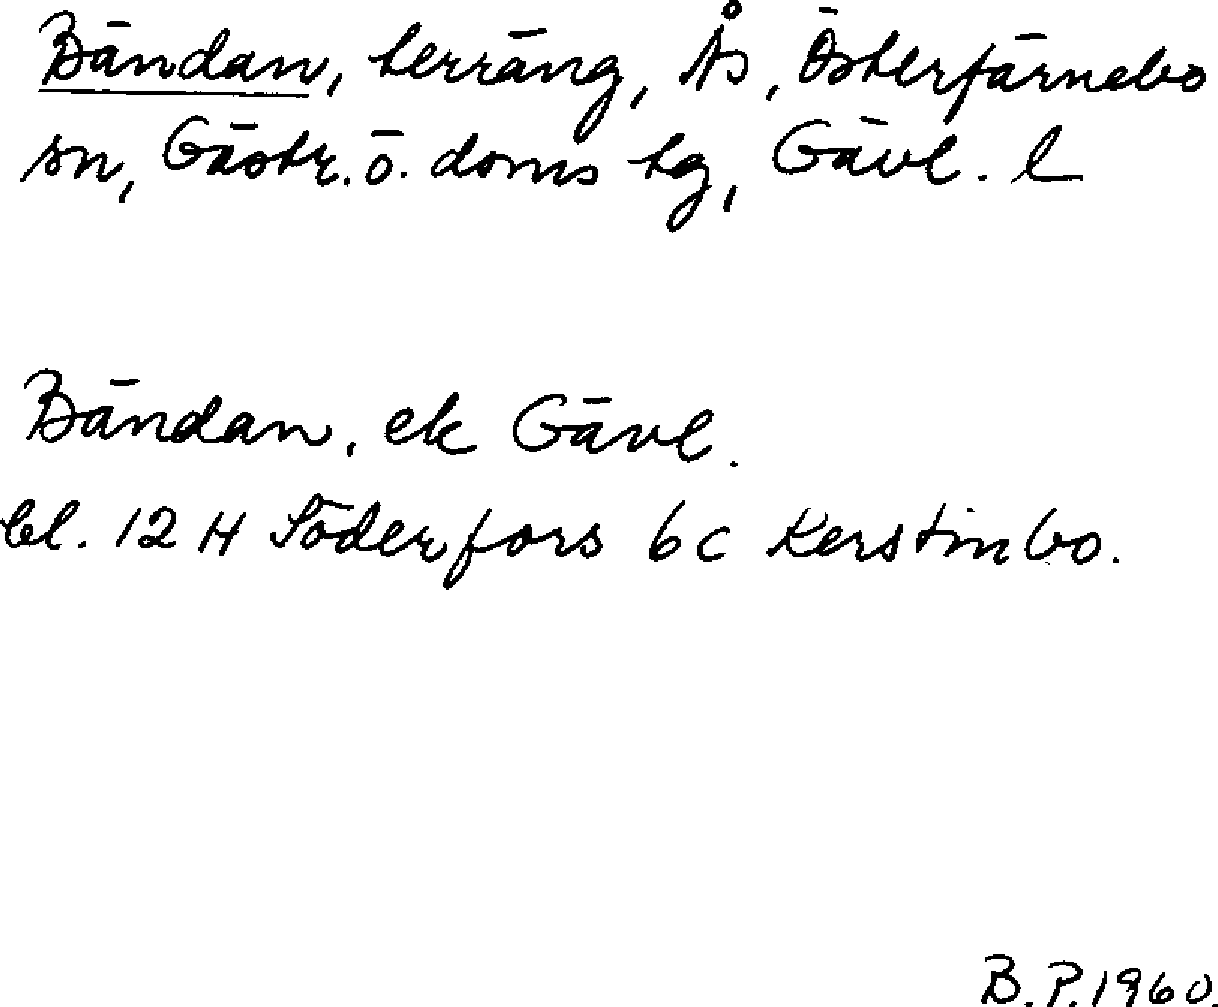 Bändan, terräng, Ås, Österfärnebo
sn, Gästr. ö. doms tg, Gävl. l
Bändan, ek Gävl.
bl. 12 H Söderfors 6 c Kerstinbo.
B.P. 1960